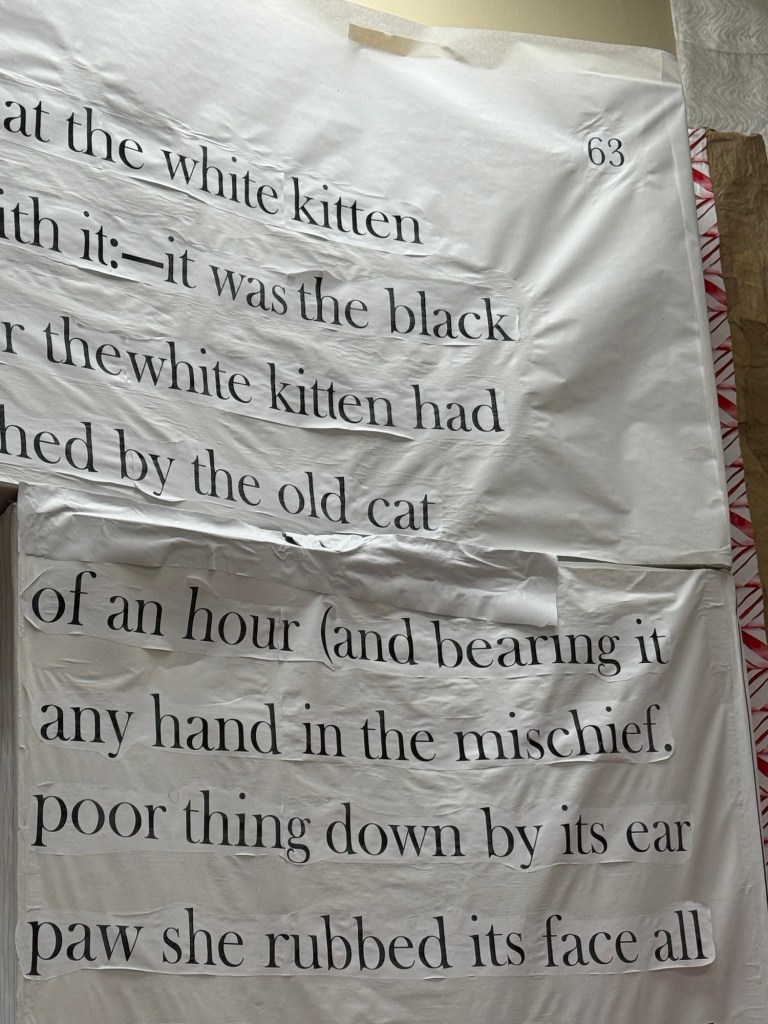 63
at the white kitten
ith it:—it was the black
r thewhite kitten had
hed by the old cat
of an hour (and bearing it
any hand in the mischief.
poor thing down by its ear
paw she rubbed its face all